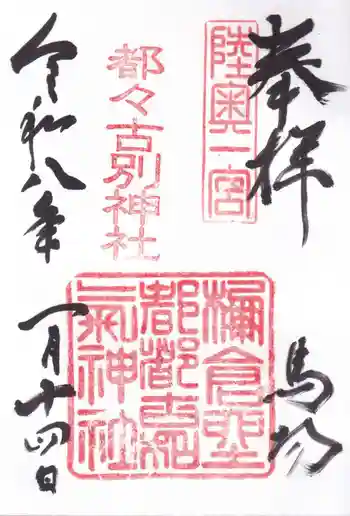 奉拝
陸奥一宮
馬場
都々古別神社
令和八年
一月十四日